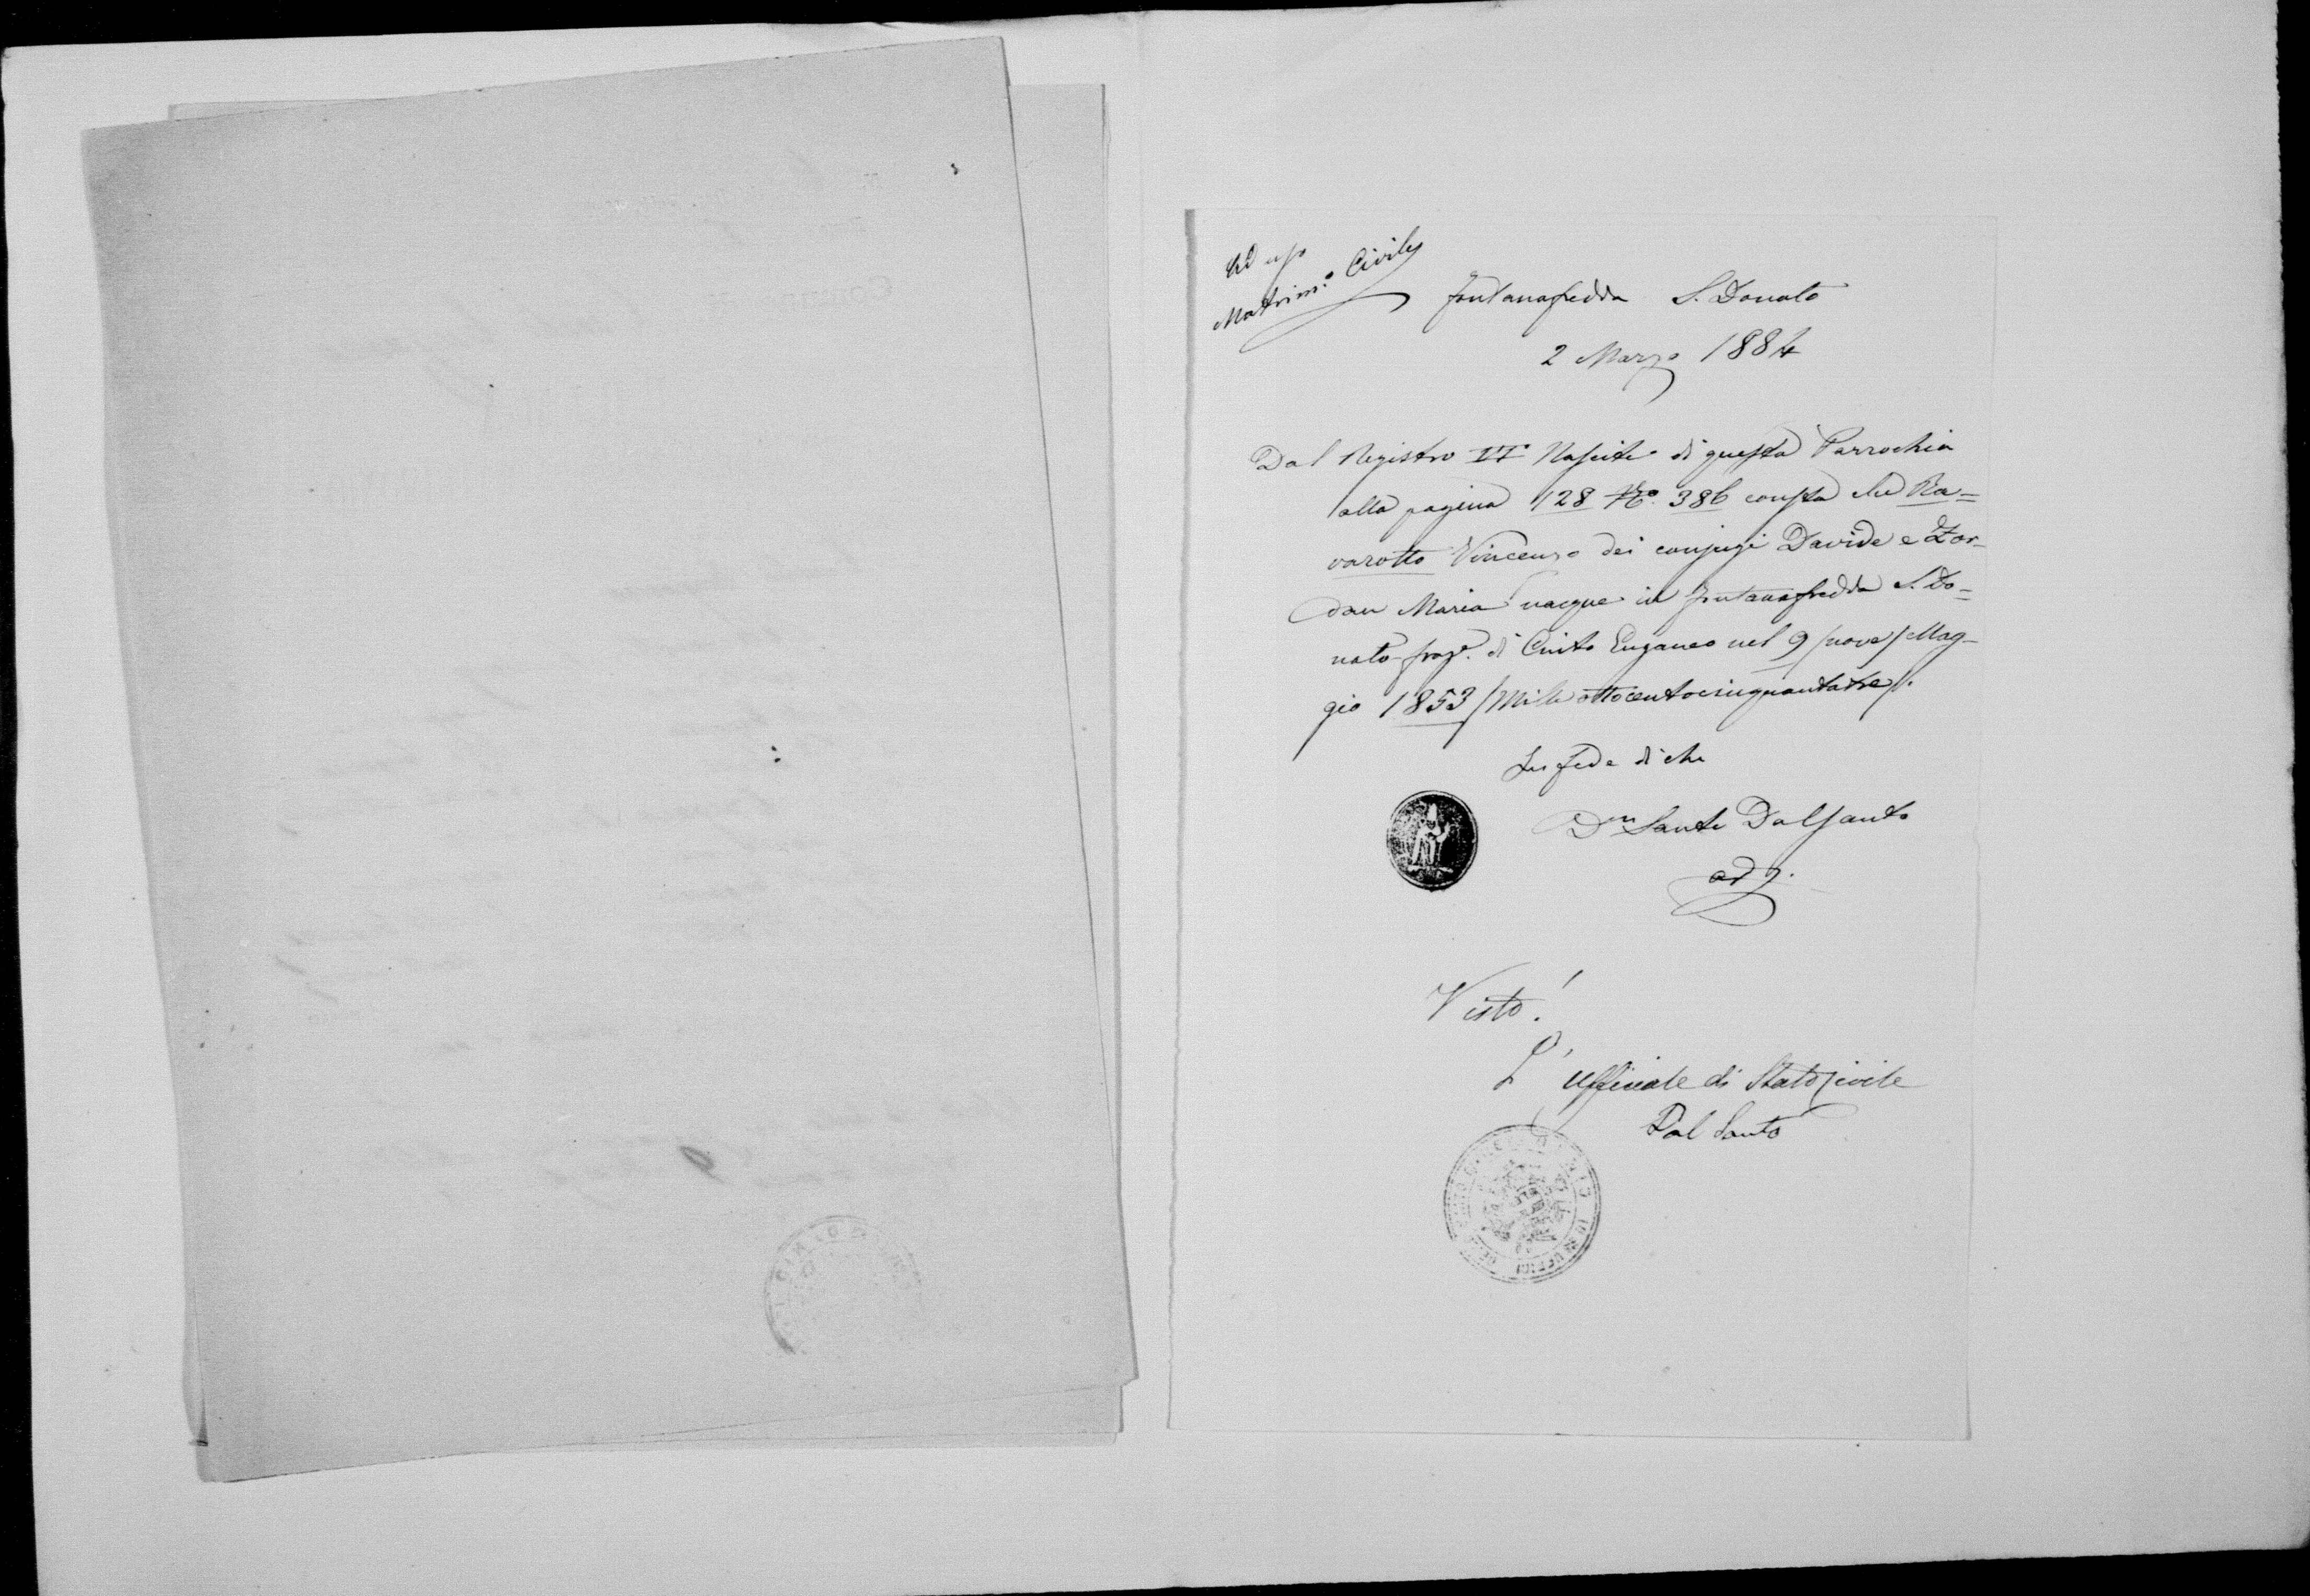 Ad uso
Matrim.º Civile
Fontanafredda S. Donato
2 Marzo 1884
Dal Registro VIº Nascite di questa Parrochia
alla pagina 128 Nº. 386 consta che Ra=
varotto Vincenzo dei conjugi Davide e Zor-
dan Maria nacque in Fontanafredda S. Do=
nato fraze. di Cinto Euganeo nel 9 /nove/ Mag-
gio 1853 /Mille ottocentocinquantatre/.
In fede di che
Dn Sante Dalsanto
Visto!
L'Ufficiale di Stato Civile
Dal Santo